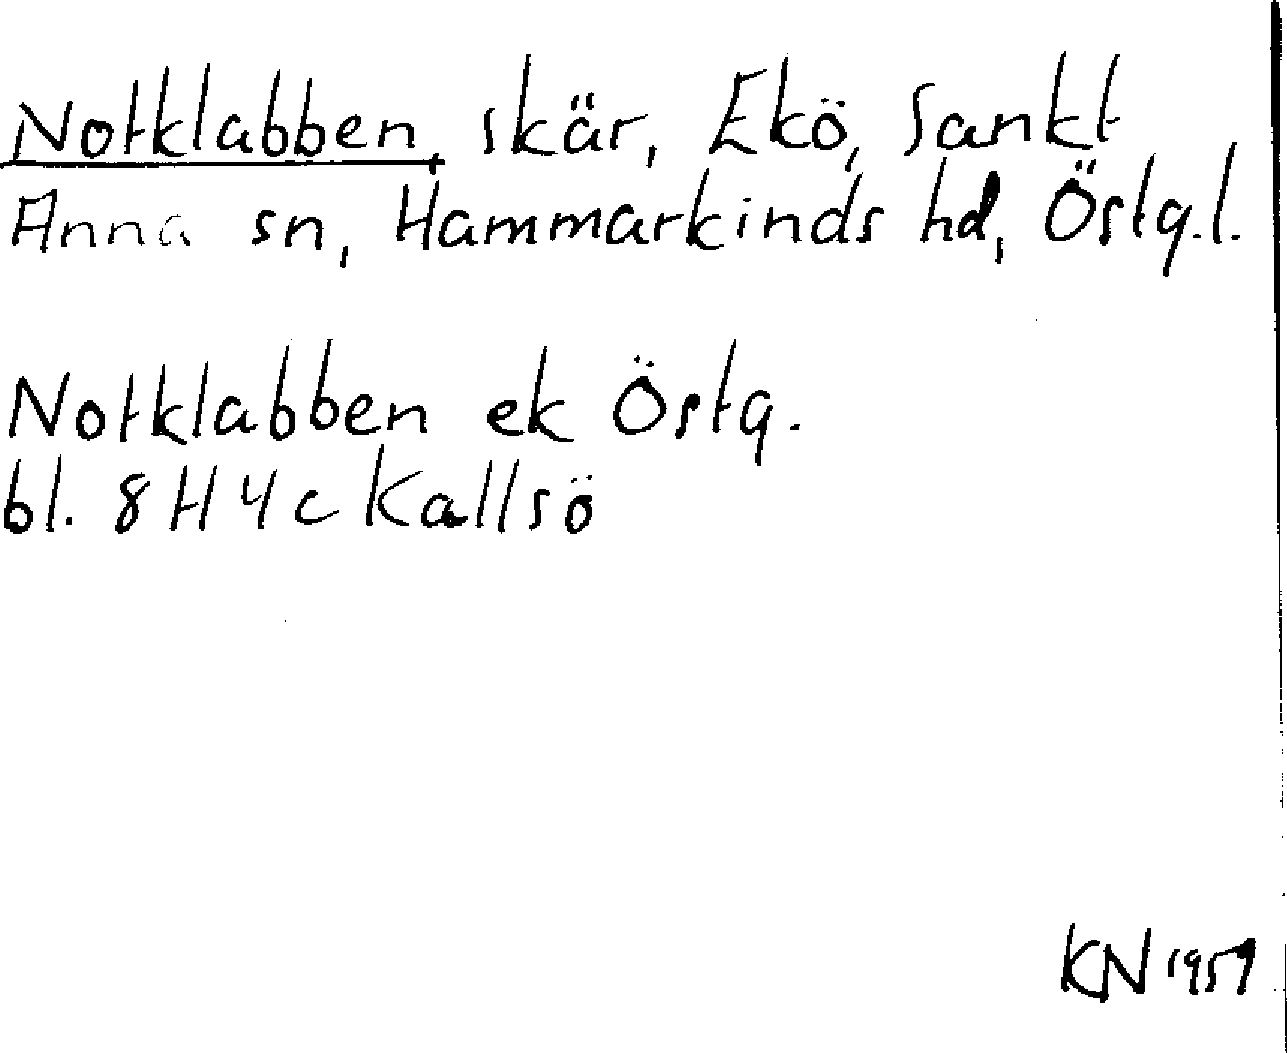 Notklabben, skär, Ekö, Sankt
Anna sn, Hammarkinds hd, Östg.l.
Notklabben ek Östg.
bl. 8H4c Kallsö
KN